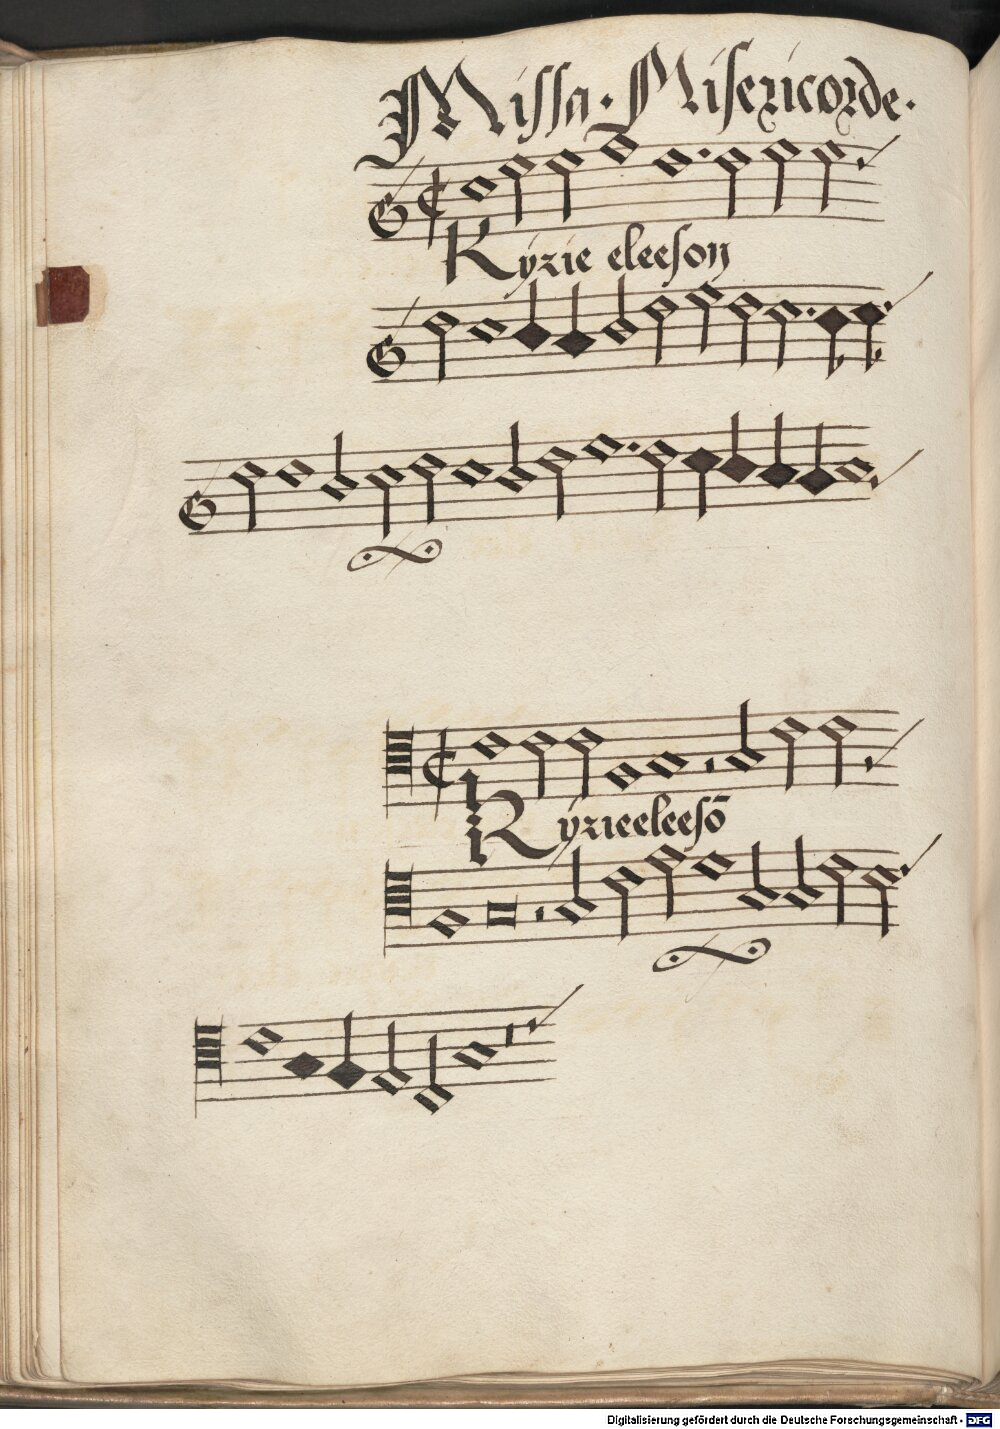 Missa · Misericorde.
Kyrie eleeson
Kyrieeleesō
Digitalisierung gefördert durch die Deutsche Forschungsgemeinschaft - DFG